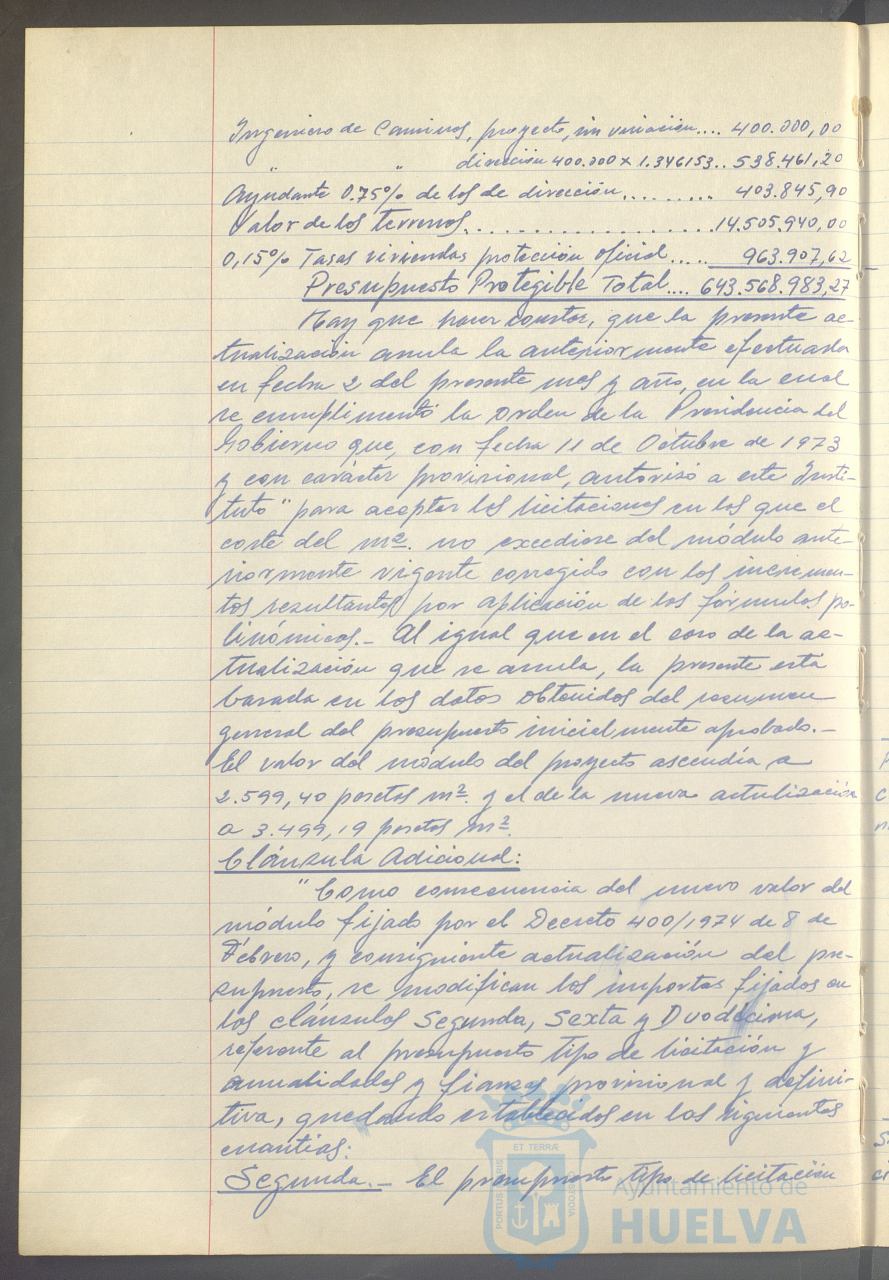 Ingeniero de Caminos, proyecto, sin variación.... 400.000,00
" " dirección 400.000 x 1.346153.. 538.461,20
Ayudante 0.75% de los de dirección......... 403.845,90
Valor de los terrenos...................14.505.940,00
0,15% Tasas viviendas protección oficial..... 963.907,62
Presupuesto Protegible Total.... 643.568.983,27
Hay que hacer constar, que la presente ac-
tualización anula la anteriormente efectuada
en fecha 2 del presente mes y año, en la cual
se cumplimentó la orden de la Presidencia del
Gobierno que, con fecha 11 de Octubre de 1973
y con carácter provisional, autorizó a este Insti-
tuto "para aceptar las licitaciones en las que el
coste del m². no excediese del módulo ante-
riormente vigente corregido con los incremen-
tos resultantes por aplicación de las fórmulas po-
linómicas.- Al igual que en el caso de la ac-
tualización que se anula, la presente está
basada en los datos obtenidos del resumen
general del presupuesto inicialmente aprobado.-
El valor del módulo del proyecto ascendía a
2.599,40 pesetas m². y el de la nueva actulización
a 3.499,19 pesetas m².
Cláusula Adicional:
"Como consecuencia del nuevo valor del
módulo fijado por el Decreto 400/1974 de 8 de
Febrero, y consiguiente actualización del pre-
supuesto, se modifican los importes fijados en
las cláusulas Segunda, Sexta y Duodécima,
referente al presupuesto tipo de licitación y
anualidades y fianzas provisional y defini-
tiva, quedando establecidos en las siguientes
cuantías:
Segunda.- El presupuesto tipo de licitación
ET TERRÆ
PORTUS MARIS
CUSTODIA
Ayuntamiento de
HUELVA